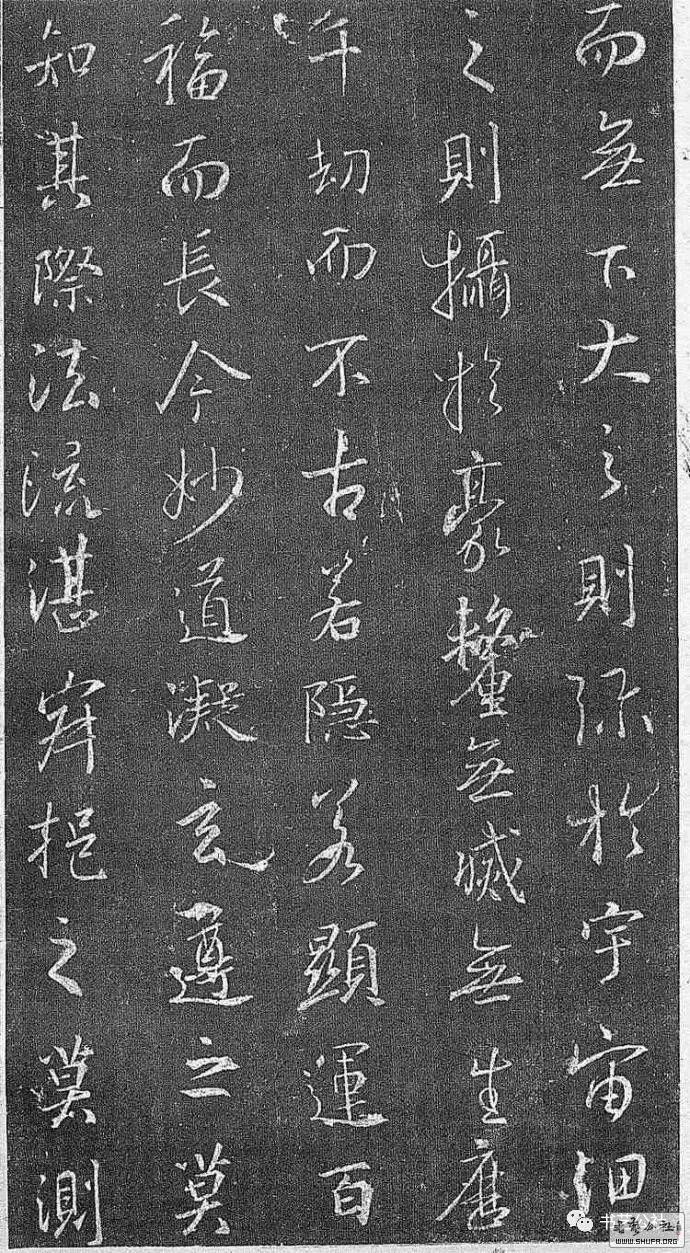 而無下大之則弥於宇宙細
之則攝於豪釐無滅無生歷
千劫而不古若隐若顯運百
福而長今妙道凝玄遵之莫
知其際法流湛寂挹之莫測
WWW.SHUFA.ORG